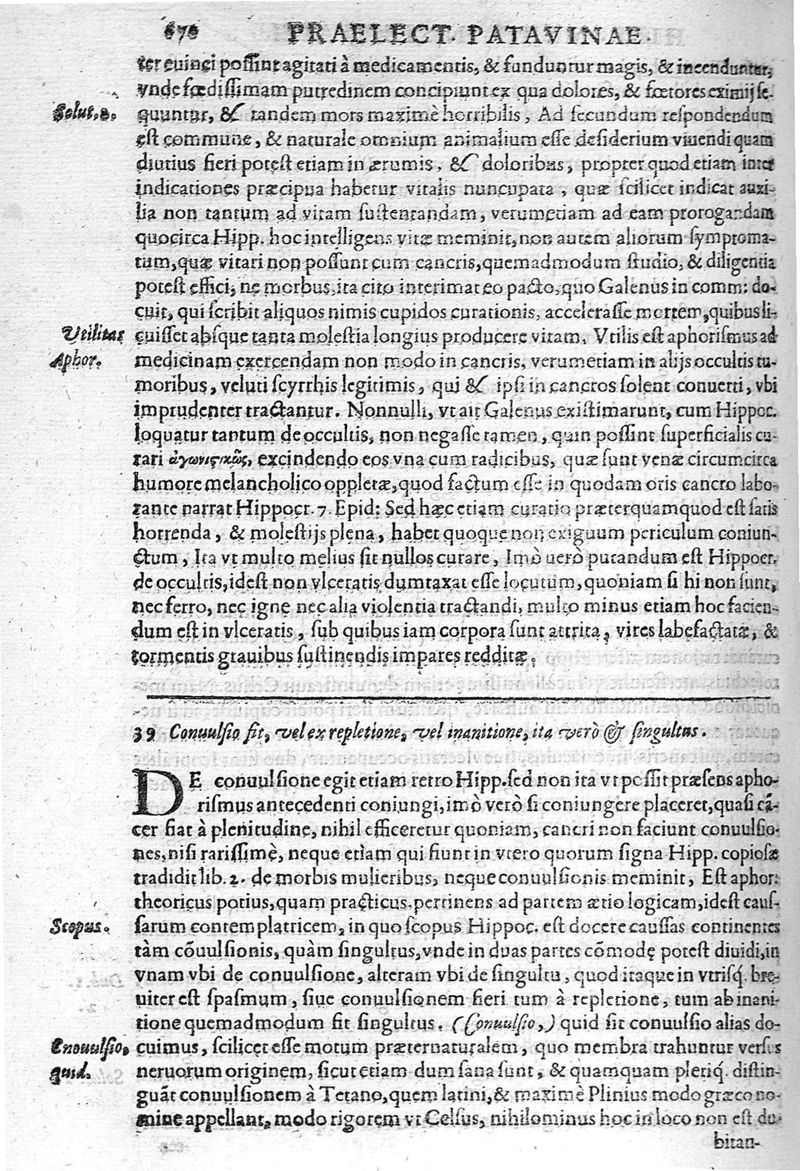 670 PRAELECT. PATAVINAE.
ter euinci possint agitati à medicamentis, & funduntur magis, & incenduntur,
vnde fœdissimam putredinem concipiunt ex qua dolores, & fœtores eximij se-
Solut. 2. quuntur, & tandem mors maximè horribilis, Ad secundum respondendum
est commune, & naturale omnium animalium esse desiderium viuendi quam
diutius fieri potest etiam in ærumis, & doloribus, propter quod etiam inter
indicationes præcipua habetur vitalis nuncupata, quæ scilicet indicat auxi-
lia non tantum ad vitam sustentandam, verumetiam ad eam prorogandam
quocirca Hipp. hoc intelligens vitæ meminit, non autem aliorum symptoma-
tum, quæ vitari non possunt cum cancris, quemadmodum studio, & diligentia
potest effici, ne morbus, ita cito interimat eo pacto, quo Galenus in comm: do-
cuit, qui scribit aliquos nimis cupidos curationis, accelerasse mortem, quibus li-
Vtilitas cuisset absque tanta molestia longius producere vitam, Vtilis est aphorismus ad
Aphor. medicinam exercendam non modo in cancris, verumetiam in alijs occultis tu-
moribus, veluti scyrrhis legitimis, qui & ipsi in cancros solent conuerti, vbi
imprudenter tractantur. Nonnulli, vt ait Galenus existimarunt, cum Hippoc.
loquatur tantum de occultis, non negasse tamen, quin possint superficialis cu-
rari ἀγωνιςικῶς, excindendo eos vna cum radicibus, quæ sunt venæ circumcirca
humore melancholico oppletæ, quod factum esse in quodam oris cancro labo-
rante narrat Hippocr. 7. Epid: Sed hæc etiam curatio præterquamquod est satis
horrenda, & molestijs plena, habet quoque non exiguum periculum coniun-
ctum, Ita vt multo melius sit nullos curare, Imò uerò putandum est Hippocr.
de occultis, idest non vlceratis dumtaxat esse locutum, quoniam si hi non sunt,
nec ferro, nec igne nec alia violentia tractandi, multo minus etiam hoc facien-
dum est in vlceratis, sub quibus iam corpora sunt attrita, vires labefactatæ, &
tormentis grauibus sustinendis impares redditæ.
39 Conuulsio fit, vel ex repletione, vel inanitione, ita verò & singultus.
DE conuulsione egit etiam retro Hipp. sed non ita vt possit præsens apho-
rismus antecedenti coniungi, imò verò si coniungere placeret, quasi cã-
cer fiat à plenitudine, nihil efficeretur quoniam, cancri non faciunt conuulsio-
nes, nisi rarissimè, neque etiam qui fiunt in vtero quorum signa Hipp. copiosæ
tradidit lib. 2. de morbis mulieribus, neque conuulsionis meminit, Est aphor:
theoricus potius, quam practicus. pertinens ad partem ætio logicam, idest caus-
Scopus. sarum contemplatricem, in quo scopus Hippoc. est docere caussas continentes
tàm cõuulsionis, quàm singultus, vnde in duas partes cõmodę potest diuidi, in
vnam vbi de conuulsione, alteram vbi de singultu, quod itaque in vtrisq. bre-
uiter est spasmum, siue conuulsionem fieri tum à repletione, tum ab inani-
tione quemadmodum fit singultus. (Conuulsio,) quid sit conuulsio alias do-
Cnouulsio, cuimus, scilicet esse motum præternaturalem, quo membra trahuntur versus
quid. neruorum originem, sicut etiam dum sana sunt, & quamquam pleriq. distin-
guãt conuulsionem à Tetano, quem latini, & maximè Plinius modo græco no-
mine appellant, modo rigorem vt Celsus, nihilominus hoc in loco non est du-
bitan-